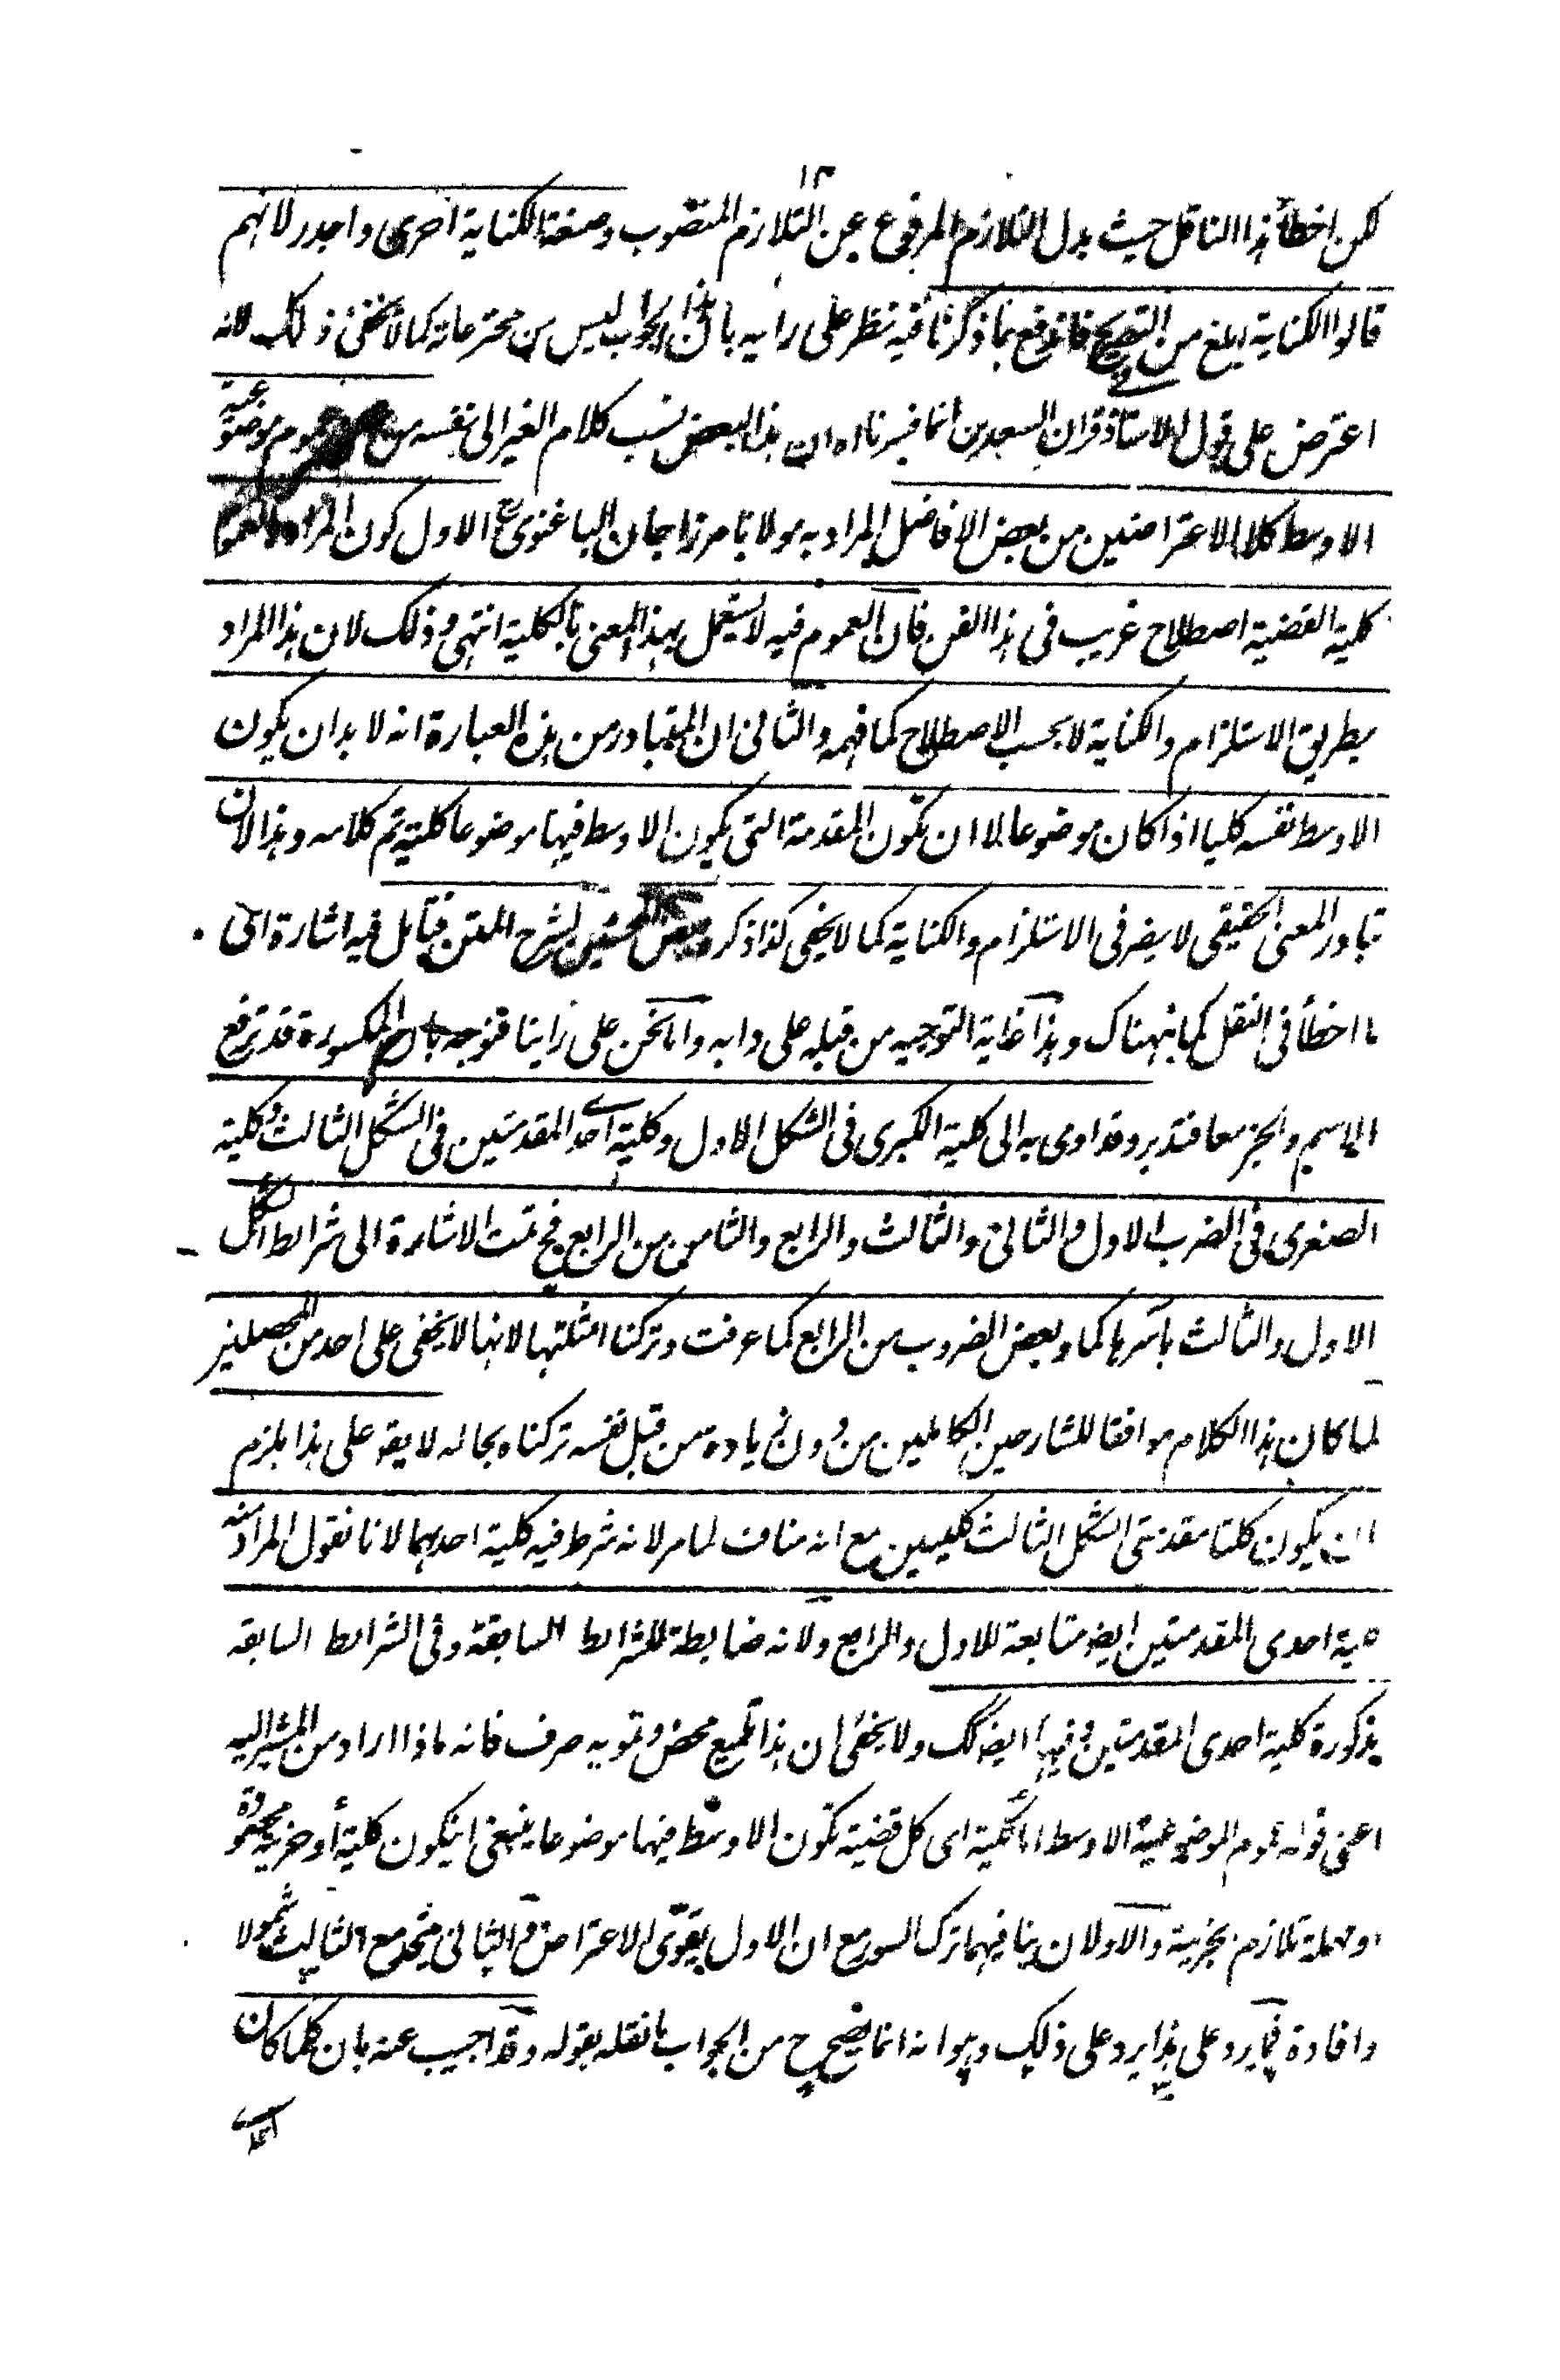 ١٣
لكن اخطأ هذا الناقل حيث بدل التلازم المرفوع عن التلازم المنصوب وصنعة الكناية احرى واجدر لانهم
قالوا الكناية ابلغ من التصريح فاندفع بما ذكرنا فيه نظر على رأيه بان هذا الجواب ليس من مخترعاته كما لا يخفى ذلك لانه
اعترض على قول الاستاذ قران السعدين انما فسرنا اه ان هذا البعض نسب كلام الغير الى نفسه من عموم موضوعية
الاوسط كلا الاعتراضين من بعض الافاضل المراد به مولانا مرزا جان الباغنوى الاول كون المراد بالعموم
كلية القضية اصطلاح غريب فى هذا الفن فان العموم فيه لا يستعمل بهذا المعنى بالكلية انتهى وذلك لان هذا المراد
بطريق الاستلزام والكناية لا بحسب الاصطلاح كما فهمه والثانى ان المتبادر من هذه العبارة انه لا بد ان يكون
الاوسط نفسه كليا اذا كان موضوعا لا ان تكون المقدمة التى يكون الاوسط فيها موضوعا كلية تم كلامه وهذا لان
تبادر المعنى الحقيقى لا يضر فى الاستلزام والكناية كما لا يخفى كذا ذكره بعض المحشين لشرح المتن فتأمل فيه اشارة الى
ما اخطأ فى النقل كما نبهناك وهذا غاية التوجيه من قبله على دابه واما نحن على رأينا فنوجه بان المكسورة قد ترفع
الاسم والخبر معا فتدبر وقد اومى به الى كلية الكبرى فى الشكل الاول وكلية احدى المقدمتين فى الشكل الثالث وكلية
الصغرى فى الضرب الاول والثانى والثالث والرابع والثامن من الرابع فح تمت الاشارة الى شرائط الشكل
الاول والثالث باسرها كما وبعض الضروب من الرابع كما عرفت وتركنا امثلتها لانها لا يخفى على احد من المحصلين
لما كان هذا الكلام موافقا للشارحين الكاملين من دون زيادة من قبل نفسه تركناه بحاله لا يقو على هذا يلزم
ان يكون كلتا مقدمتى الشكل الثالث كليتين مع انه مناف لما مر لانه شرط فيه كلية احديهما لانا نقول المراد منه
كلية احدى المقدمتين ايضو متابعة للاول والرابع ولانه ضابطة للشرائط السابقة وفى الشرائط السابقه
مذكورة كلية احدى المقدمتين وفيها ايضو كك ولا يخفى ان هذا تلميع محض وتمويه صرف فانه ماذا اراد من المشير اليه
اعنى قوله عموم الموضوعية الاوسط اما كلية اى كل قضية تكون الاوسط فيها موضوعا ينبغى ان يكون كلية أو جزئية محضة
او مهملة تلازم بجزئية والاولان ينافيهما ترك السور مع ان الاول يقوى الاعتراض والثانى متحد مع الثالث شمولا
وافادة فما يرد على هذا يرد على ذلك وهو انه انما يصح ح من الجواب ما نقله بقوله وقد اجيب عنه بان كلما كان